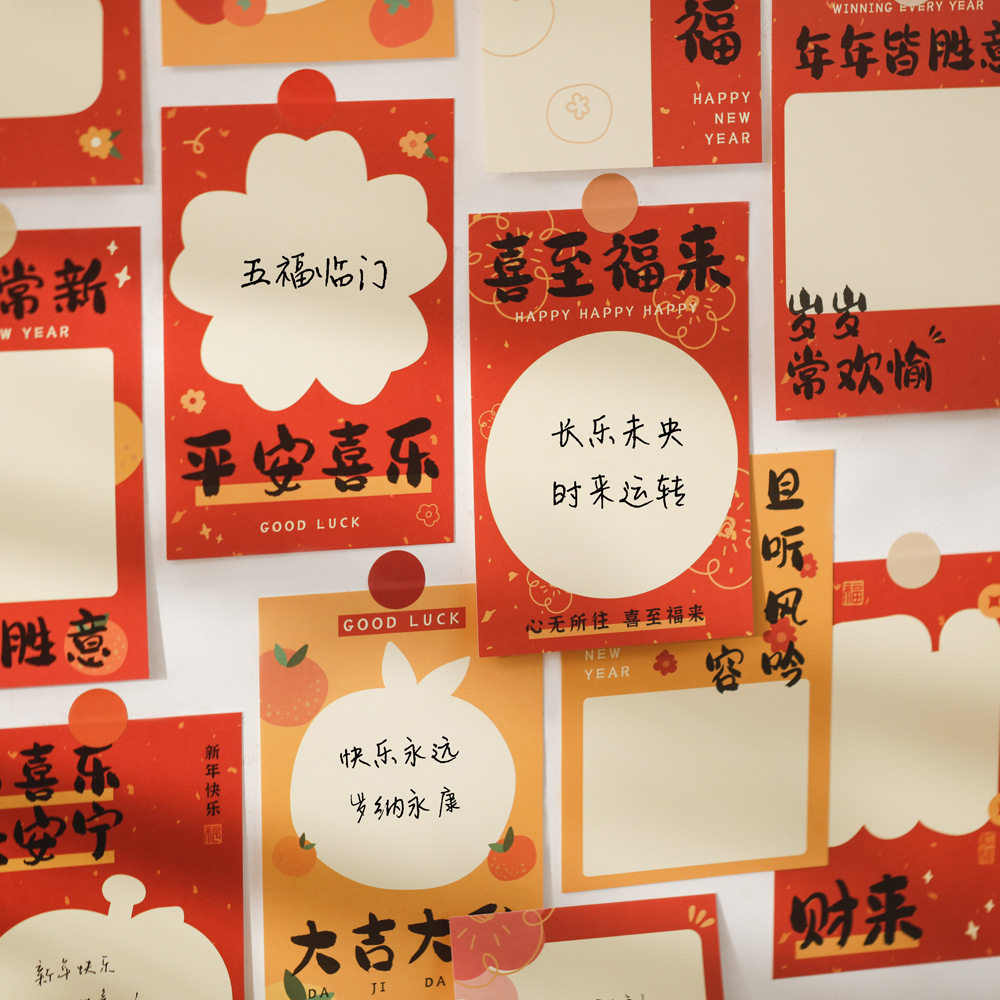 福
HAPPY
NEW
YEAR
WINNING EVERY YEAR
年年皆胜意
岁岁
常欢愉
五福临门
平安喜乐
GOOD LUCK
喜至福来
HAPPY HAPPY HAPPY
长乐未央
时来运转
心无所往 喜至福来
常新
YEAR
胜意
且听风吟
容
NEW
YEAR
GOOD LUCK
快乐永远
岁纳永康
大吉大
DA JI DA
喜乐
安宁
新年快乐
福
新年快乐
福
财来